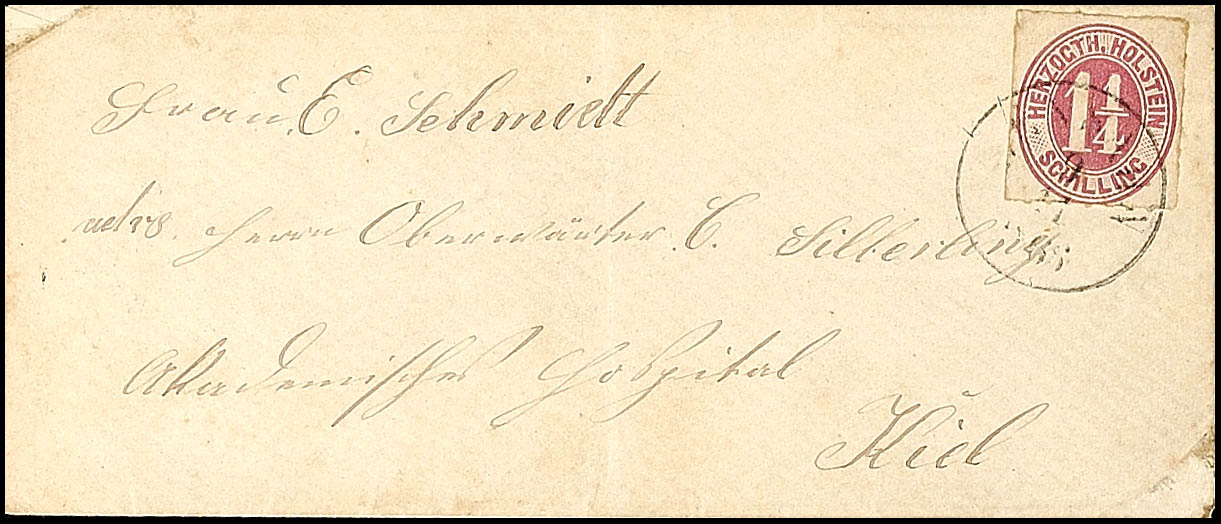 HERZOGTH. HOLSTEIN
1 1/4
SCHILLING
Frau. E. Schmidt
adrs. Herrn Oberwärter C. Silberling
Akademisches Hospital
Kiel